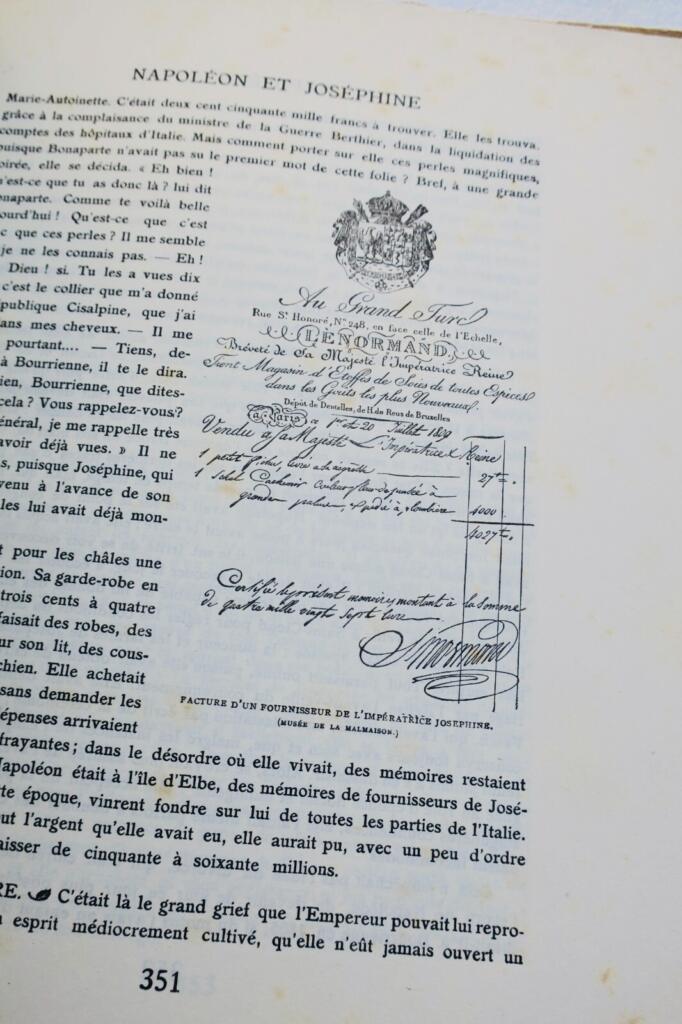 NAPOLÉON ET JOSÉPHINE
Marie-Antoinette. C'était deux cent cinquante mille francs à trouver. Elle les trouva.
grâce à la complaisance du ministre de la Guerre Berthier, dans la liquidation des
comptes des hôpitaux d'Italie. Mais comment porter sur elle ces perles magnifiques,
puisque Bonaparte n'avait pas su le premier mot de cette folie ? Bref, à une grande
oirée, elle se décida. « Eh bien !
n'est-ce que tu as donc là ? lui dit
onaparte. Comme te voilà belle
ourd'hui ! Qu'est-ce que c'est
c que ces perles ? Il me semble
je ne les connais pas. — Eh !
Dieu ! si. Tu les a vues dix
c'est le collier que m'a donné
épublique Cisalpine, que j'ai
ans mes cheveux. — Il me
pourtant.... — Tiens, de-
à Bourrienne, il te le dira.
ien, Bourrienne, que dites-
cela ? Vous rappelez-vous ?
énéral, je me rappelle très
avoir déjà vues. » Il ne
s, puisque Joséphine, qui
venu à l'avance de son
les lui avait déjà mon-
t pour les châles une
ion. Sa garde-robe en
trois cents à quatre
faisait des robes, des
ur son lit, des cous-
chien. Elle achetait
sans demander les
épenses arrivaient
Au Grand Turc
Rue St. Honoré, No. 248, en face celle de l'Echelle,
LENORMAND,
Bréveté de Sa Majesté l'Impératrice Reine
Tient Magasin d'Etoffes de Soies de toutes Espèces
dans les Goûts les plus Nouveaux.
Dépôt de Dentelles, de H. de Reus de Bruxelles
à Paris ce 1er et 20 Juillet 1809
Vendu à sa Majesté L'Impératrice & Reine
1 petit fichu, 27
1 Schal Cachemir Couleur fleur de
grandes palmes, 4000
4027
Certifié le présent mémoire, montant à la somme
de quatre mille vingt sept livre
FACTURE D'UN FOURNISSEUR DE L'IMPÉRATRICE JOSEPHINE.
(MUSÉE DE LA MALMAISON.)
frayantes ; dans le désordre où elle vivait, des mémoires restaient
Napoléon était à l'île d'Elbe, des mémoires de fournisseurs de José-
te époque, vinrent fondre sur lui de toutes les parties de l'Italie.
out l'argent qu'elle avait eu, elle aurait pu, avec un peu d'ordre
aisser de cinquante à soixante millions.
RE. C'était là le grand grief que l'Empereur pouvait lui repro-
n esprit médiocrement cultivé, qu'elle n'eût jamais ouvert un
351